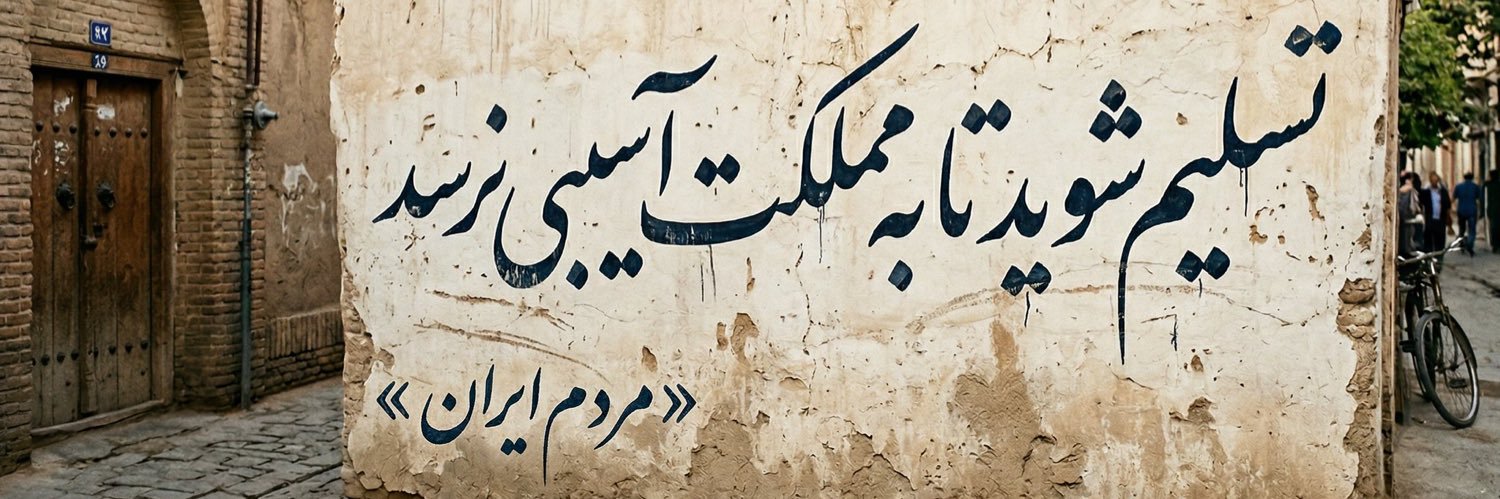 تسلیم شوید تا به مملکت آسیبی نرسد
«مردم ایران»